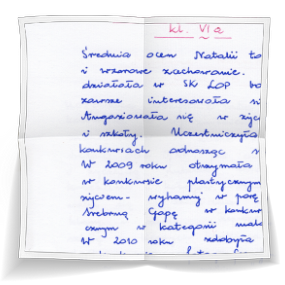 kl. VI a
Średnia ocen Natalii to
i wzorowe zachowanie.
działała w SK LOP bo
zawsze interesowała si
Angażowała się w życi
i szkoły. Uczestniczyła
konkursach odnosząc s
W 2009 roku otrzymała
w konkursie plastycznym
życiem - wybamy w porę
Srebrną Gapę w konkur
cznym w kategorii mala
W 2010 roku zdobyła